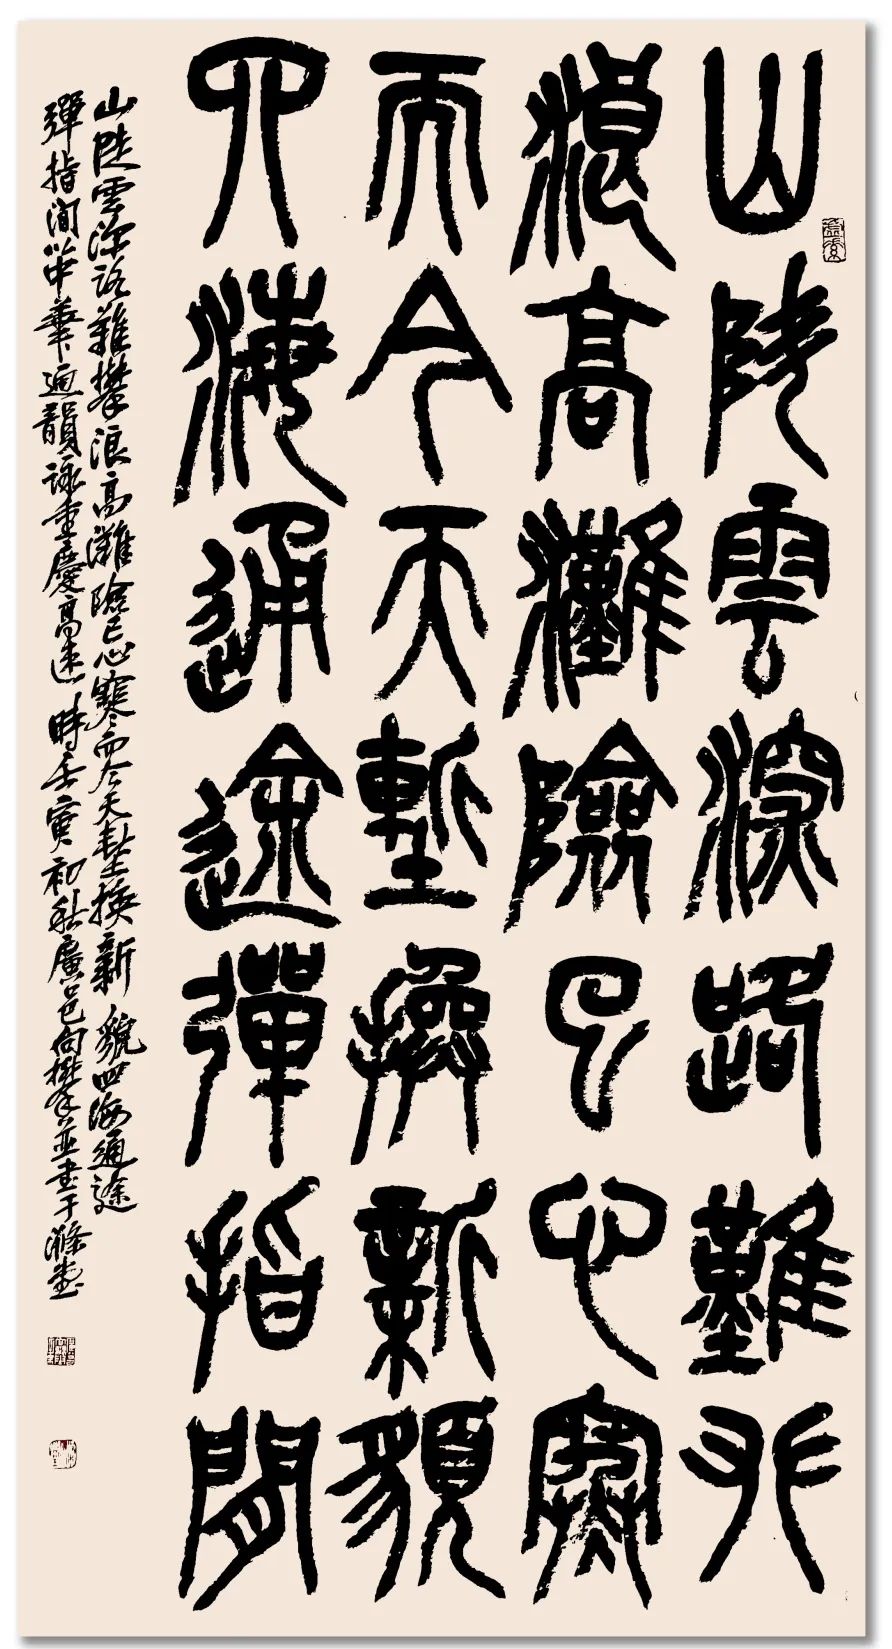 山陡雲深路難攀
浪高灘險已心寒
而今天塹換新貌
四海通途彈指間
山陡雲深路難攀浪高灘險已心寒而今天塹換新貌四海通途
彈指間以中華通韻詠重慶高速時壬寅初秋廣邑向攀並書于滌